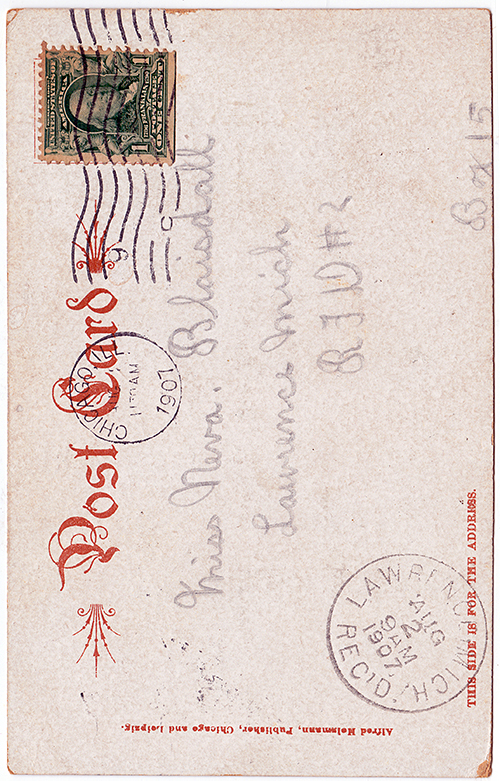 Post Card
1 1
ONE CENT
CHICAGO
AM
1907
Miss Neva. Blaisdall
Lawrence Mich
R F D # 2
Box 15
LAWRENCE, MICH.
AUG
2
9AM
1907
REC'D.
THIS SIDE IS FOR THE ADDRESS.
Alfred Holzmann, Publisher, Chicago and Leipzig.